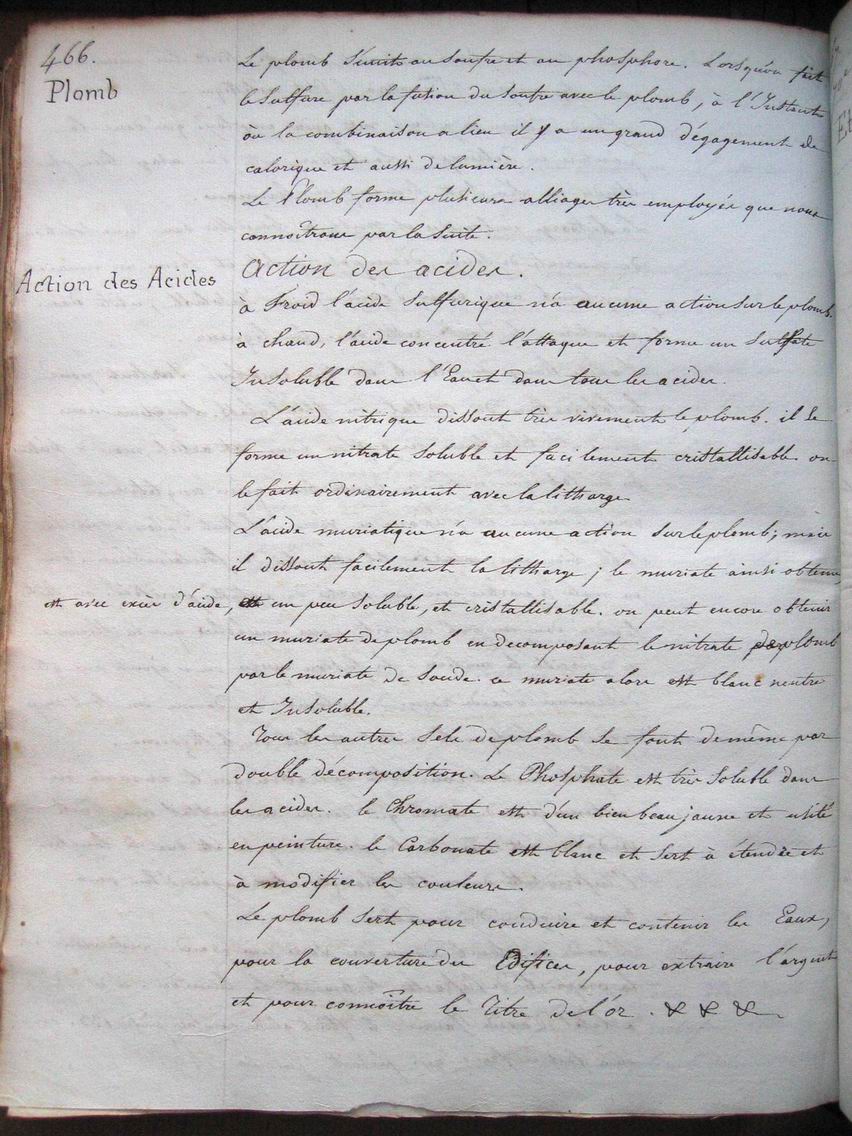 466.
Plomb
Le plomb s'unit au soufre et au phosphore. Lorsqu'on fait
le sulfure par la fusion du soufre avec le plomb, à l'Instant
où la combinaison a lieu il y a un grand dégagement de
calorique et aussi de lumière.
Le Plomb forme plusieurs alliages très employés que nous
connoîtrons par la suite.
Action des Acides
Action des acides.
à Froid l'acide sulfurique n'a aucune action sur le plomb.
à chaud, l'acide concentré l'attaque et forme un sulfate
Insoluble dans l'Eau et dans tous les acides.
L'acide nitrique dissout très vivement le plomb. il se
forme un nitrate soluble et facilement cristallisable on
le fait ordinairement avec la litharge
L'acide muriatique n'a aucune action sur le plomb; mais
il dissout facilement la litharge; le muriate ainsi obtenu
est avec excès d'acide, est un peu soluble, et cristallisable. on peut encore obtenir
un muriate de plomb en decomposant le nitrate de plomb
par le muriate de soude. ce muriate alors est blanc neutre
et Insoluble.
Tous les autres sels de plomb se font de même par
double décomposition. Le Phosphate est très soluble dans
les acides. le Chromate est d'un bien beau jaune et usité
en peinture. le Carbonate est blanc et sert à étendre et
à modifier les couleurs.
Le plomb sert pour conduire et contenir les Eaux,
pour la couverture des Edifices, pour extraire l'argent
et pour connoître le Titre de l'or.